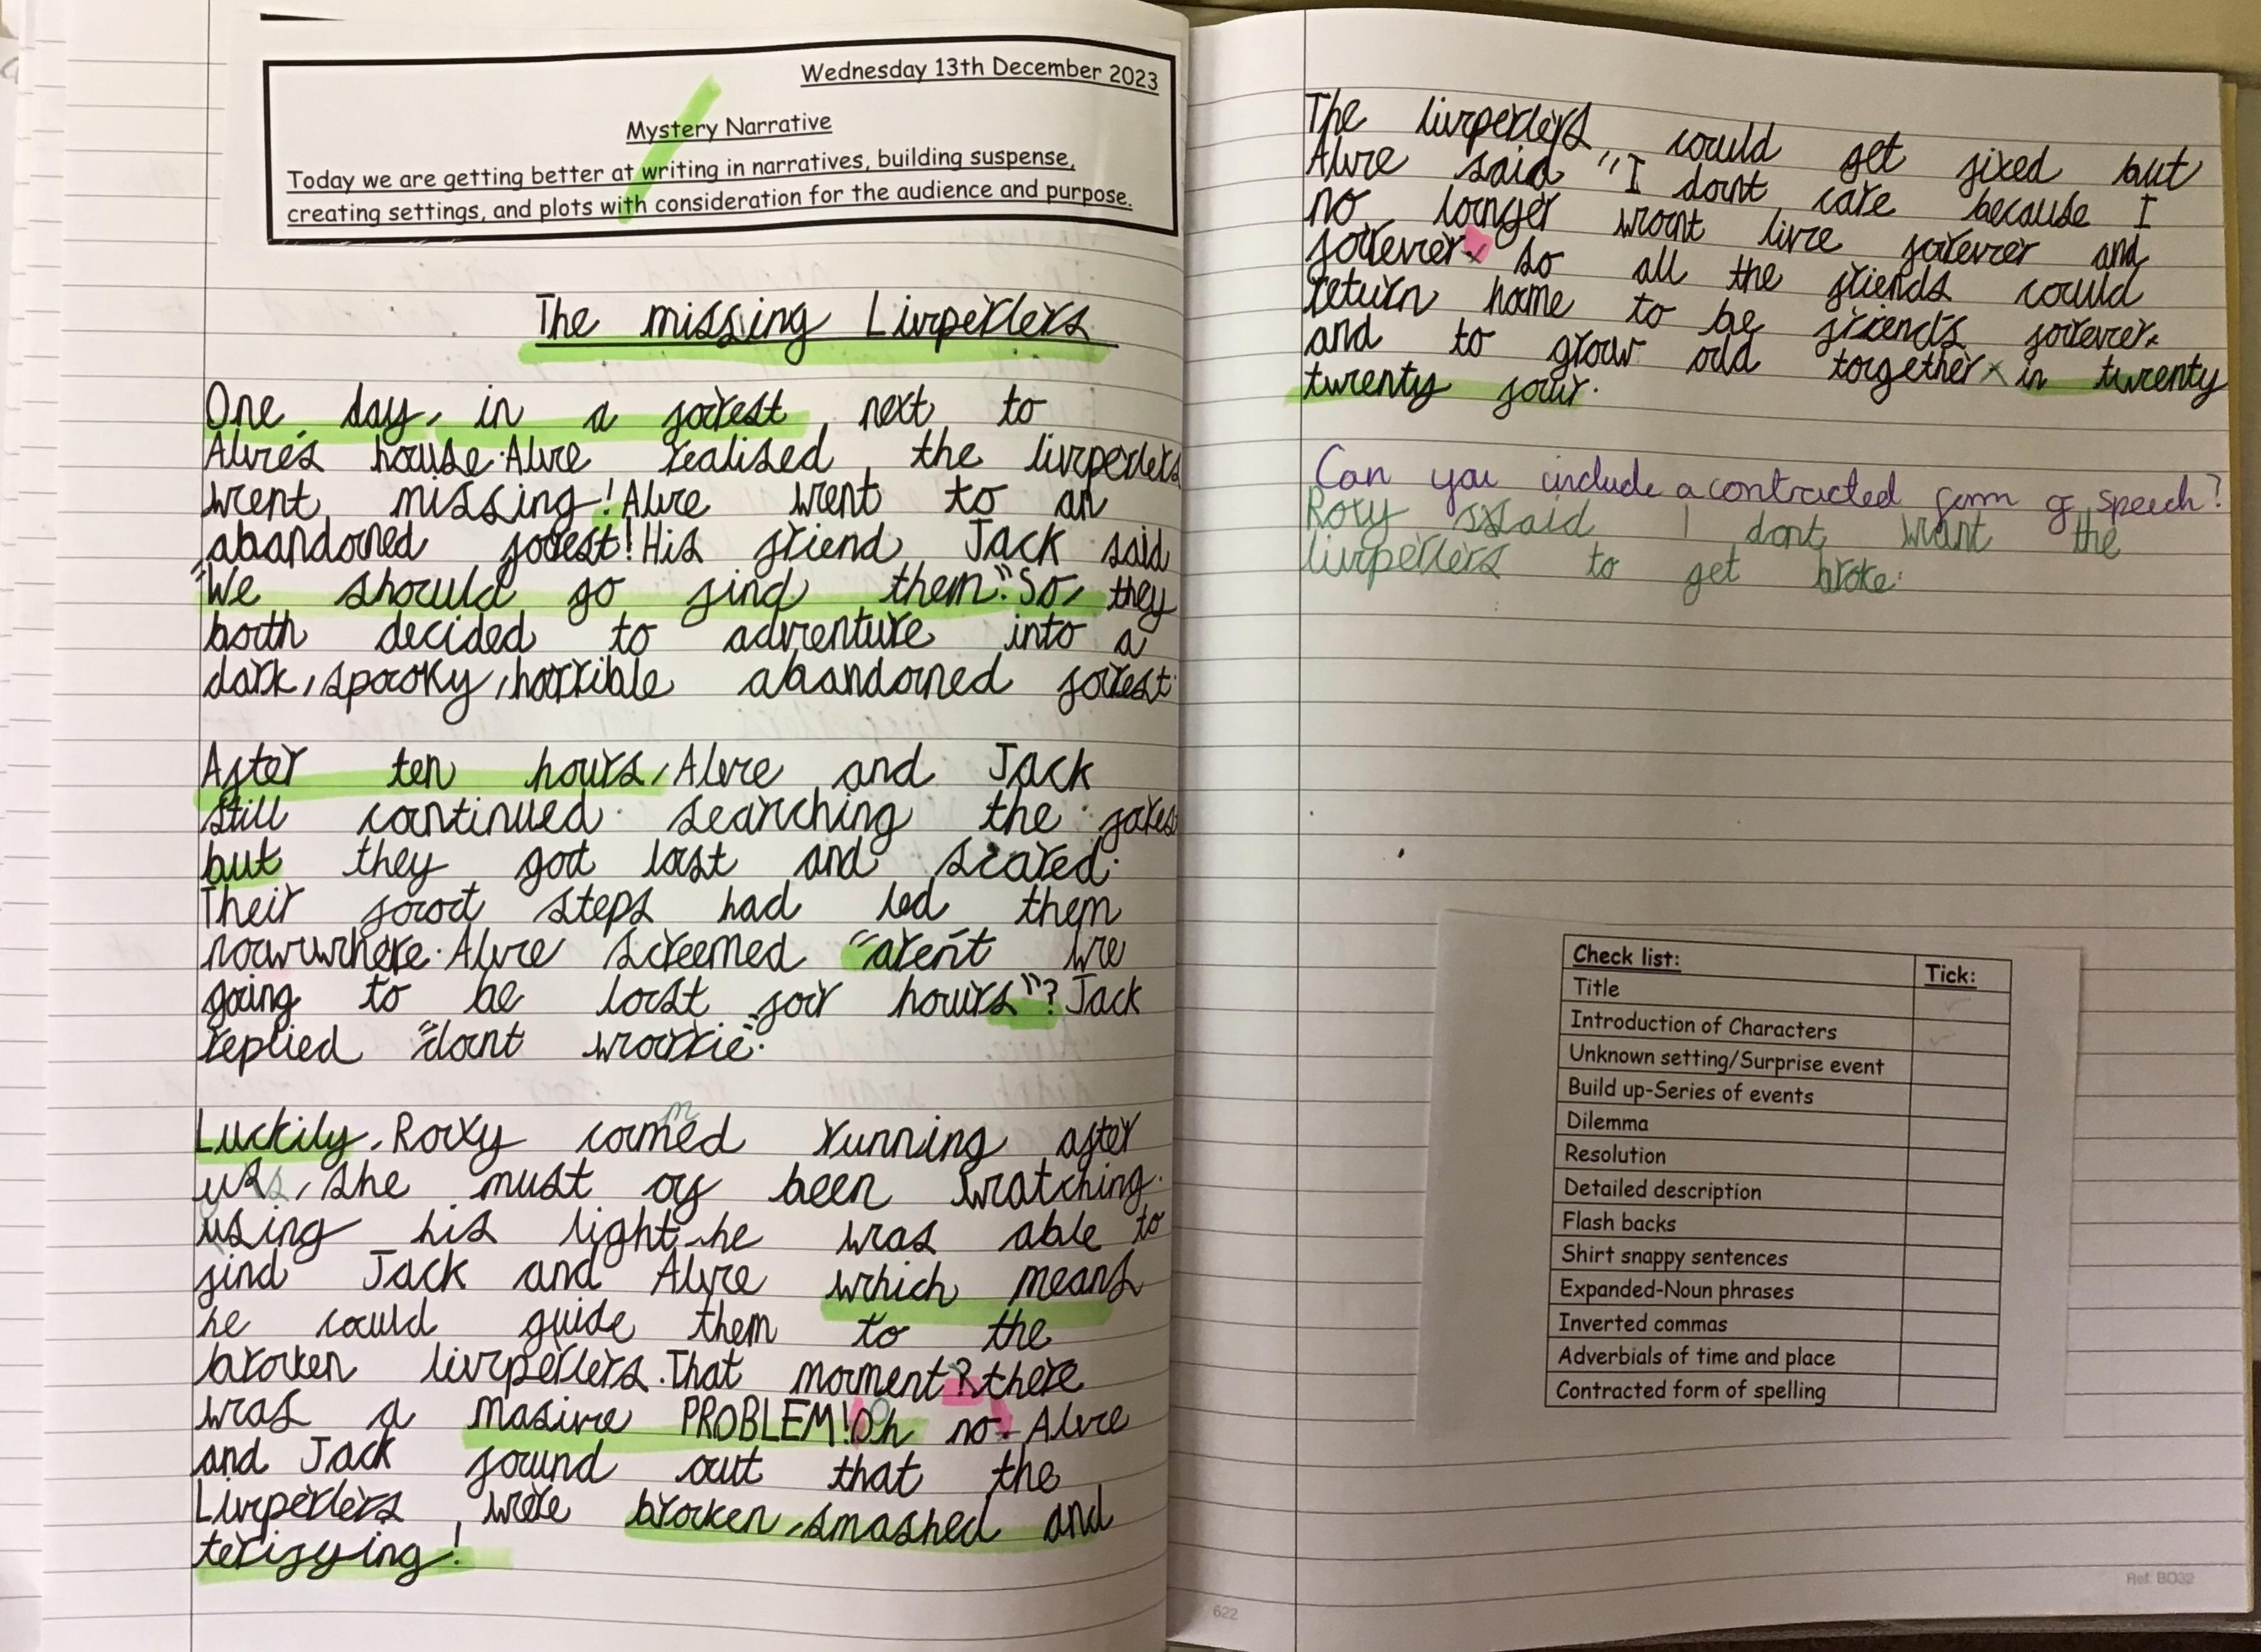 Wednesday 13th December 2023
Mystery Narrative
Today we are getting better at writing in narratives, building suspense,
creating settings, and plots with consideration for the audience and purpose.
The missing Livperlers
One day, in a forest next to
Alve's house. Alve realised the livperlers
went missing! Alve went to an
abandoned forest! His friend Jack said
"We should go find them." So, they
both decided to adventure into a
dark, spooky, horrible abandoned forest.
After ten hours, Alve and Jack
still continued searching the fores
but they got lost and scared.
Their foot steps had led them
nowuwhere. Alve screemed "aren't we
going to be lost for hours"? Jack
replied "dont worrie".
Luckily, Roxy comed running after
us, she must of been watching.
using his light he was able to
find Jack and Alve which means
he could guide them to the
broken livperlers. That moment? there
was a masive PROBLEM! Oh no. Alve
and Jack found out that the
Livperlers were broken, smashed and
terifying!
The livperlers could get fixed but
Alve said "I dont care because I
no longer wont live forever and
forever. so all the friends could
return home to be friend's forever.
and to grow old torgether in twenty
twenty four.
Can you include a contracted form of speech?
Roxy said I dont want the
livperlers to get broke.
Check list:
Tick:
Title
Introduction of Characters
Unknown setting/Surprise event
Build up-Series of events
Dilemma
Resolution
Detailed description
Flash backs
Shirt snappy sentences
Expanded-Noun phrases
Inverted commas
Adverbials of time and place
Contracted form of spelling
622
Ref: BO32